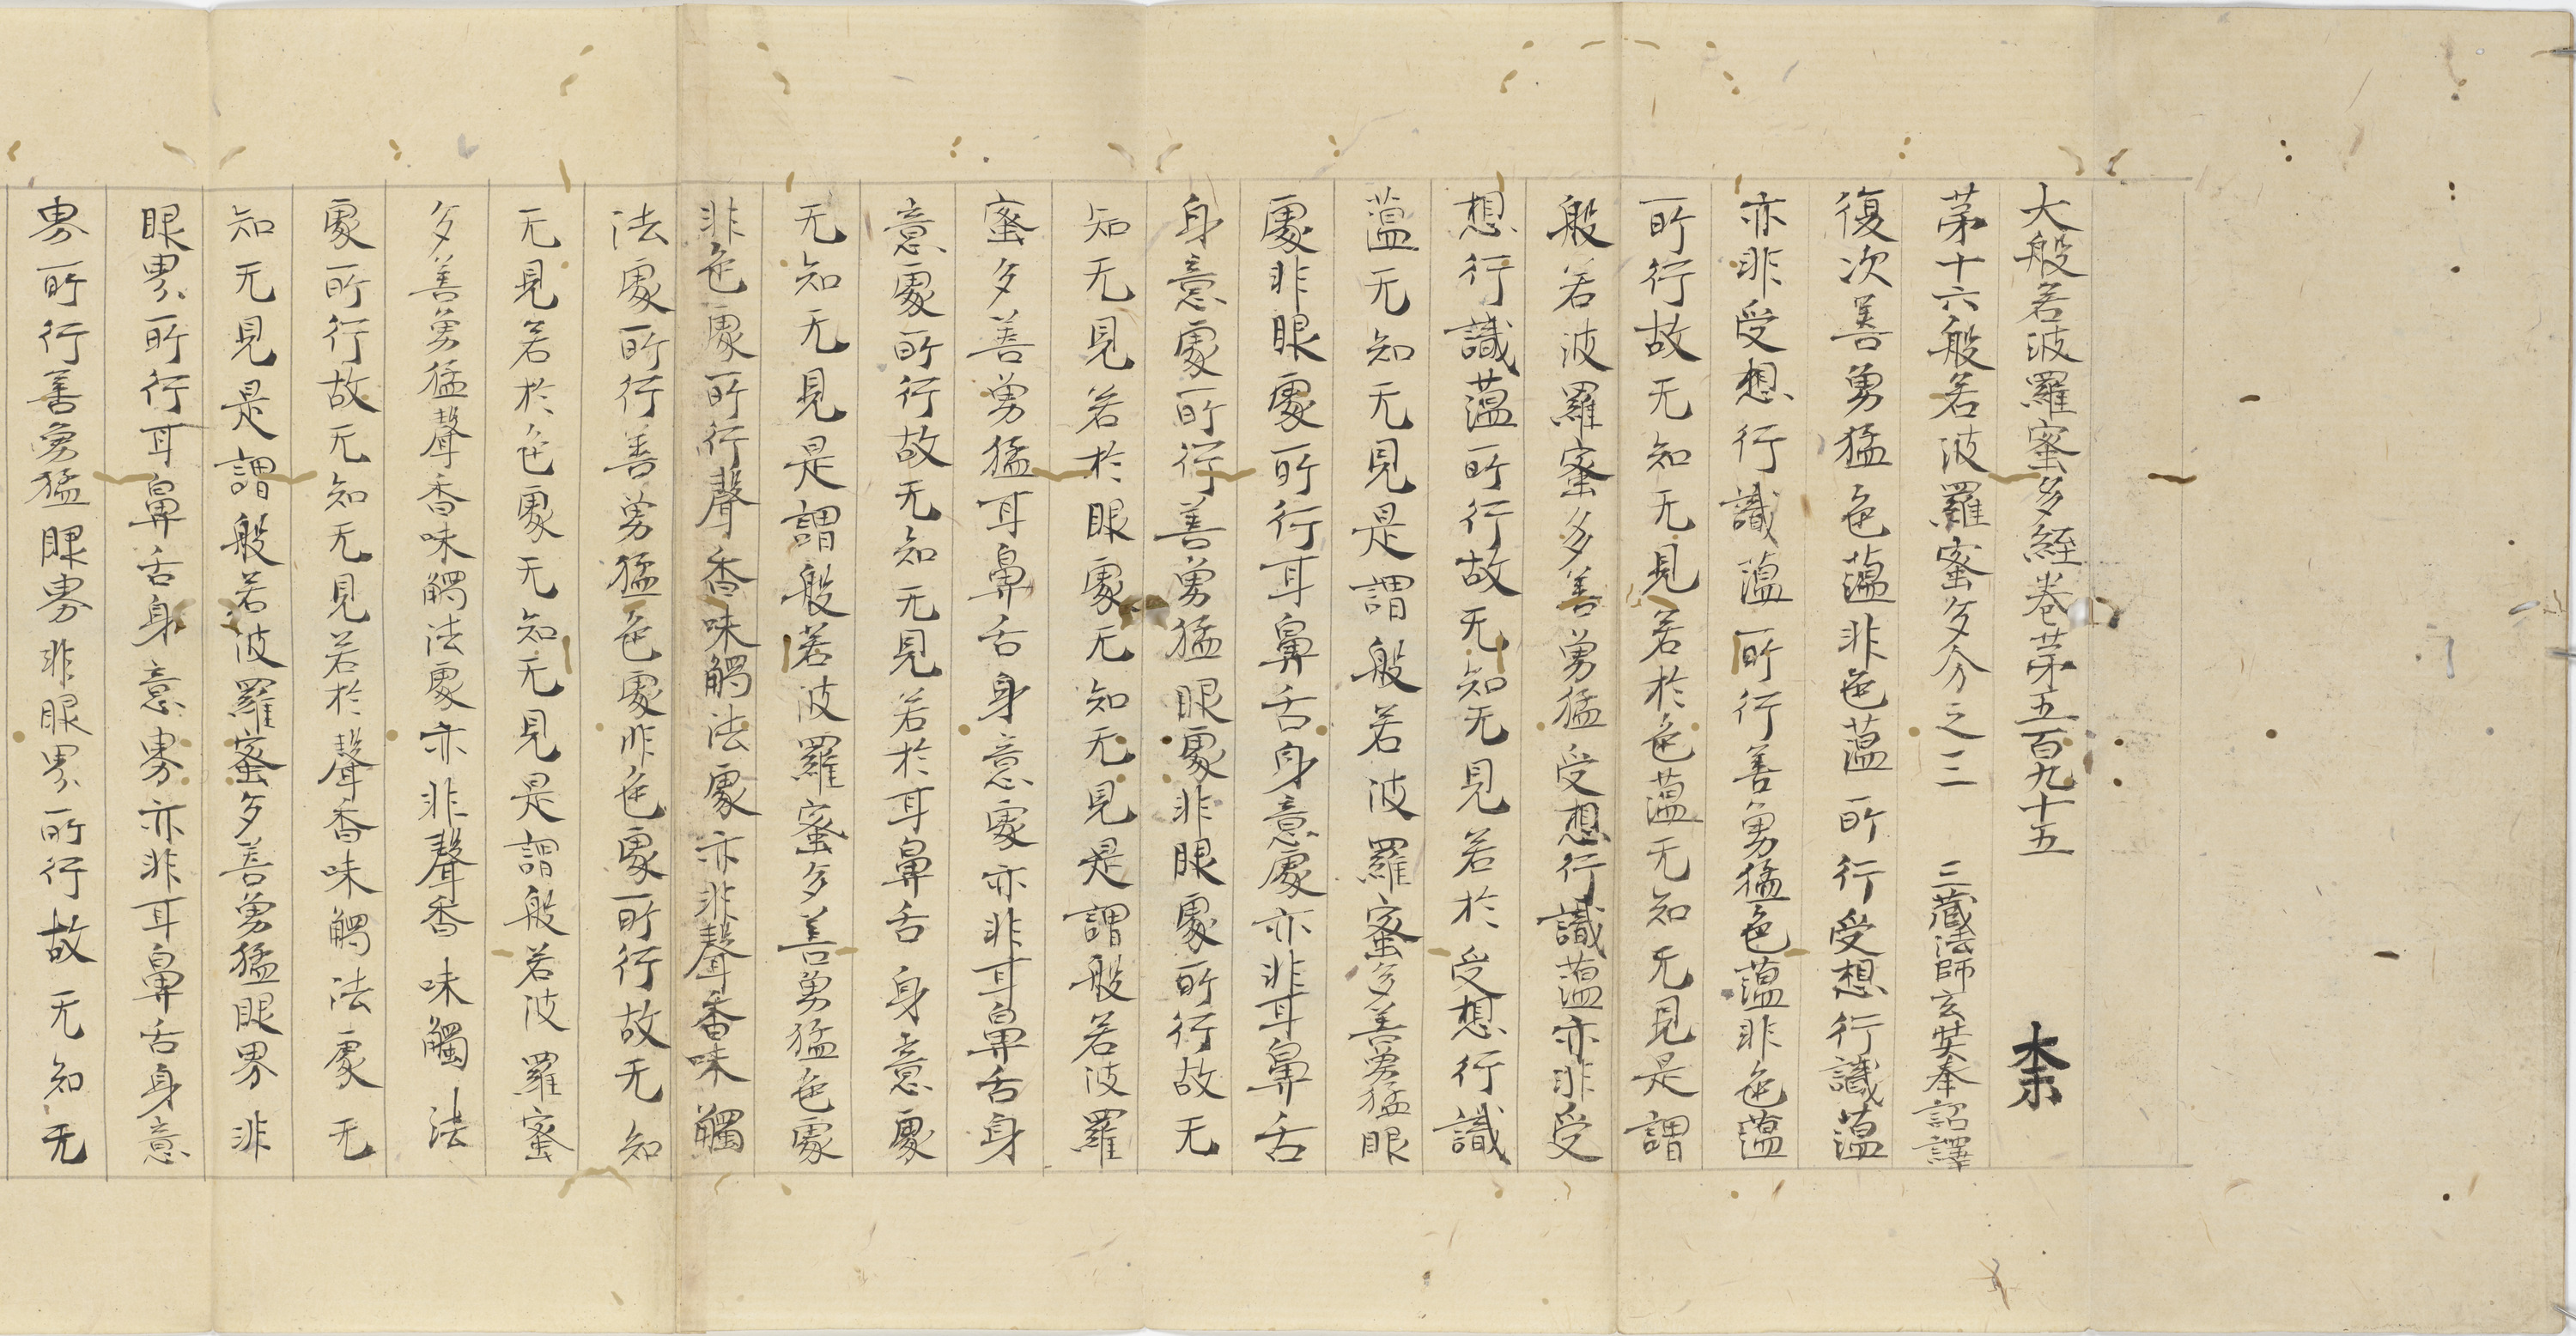 大般若波羅蜜多経卷苐五百九十五 柰
苐十六般若波羅蜜多分之三 三藏法師玄奘奉詔譯
復次善勇猛色薀非色薀所行受想行識薀
亦非受想行識薀所行善勇猛色薀非色薀
所行故无知无見若於色薀无知无見是謂
般若波羅蜜多善勇猛受想行識薀亦非受
想行識薀所行故无知无見若於受想行識
薀无知无見是謂般若波羅蜜多善勇猛眼
處非眼處所行耳鼻舌身意處亦非耳鼻舌
身意處所行善勇猛眼處非眼處所行故无
知无見若於眼處无知无見是謂般若波羅
蜜多善勇猛耳鼻舌身意處亦非耳鼻舌身
意處所行故无知无見若於耳鼻舌身意處
无知无見是謂般若波羅蜜多善勇猛色處
非色處所行聲香味觸法處亦非聲香味觸
法處所行善勇猛色處非色處所行故无知
无見若於色處无知无見是謂般若波羅蜜
多善勇猛聲香味觸法處亦非聲香味觸法
處所行故无知无見若於聲香味觸法處无
知无見是謂般若波羅蜜多善勇猛眼界非
眼界所行耳鼻舌身意界亦非耳鼻舌身意
界所行善勇猛眼界非眼界所行故无知无